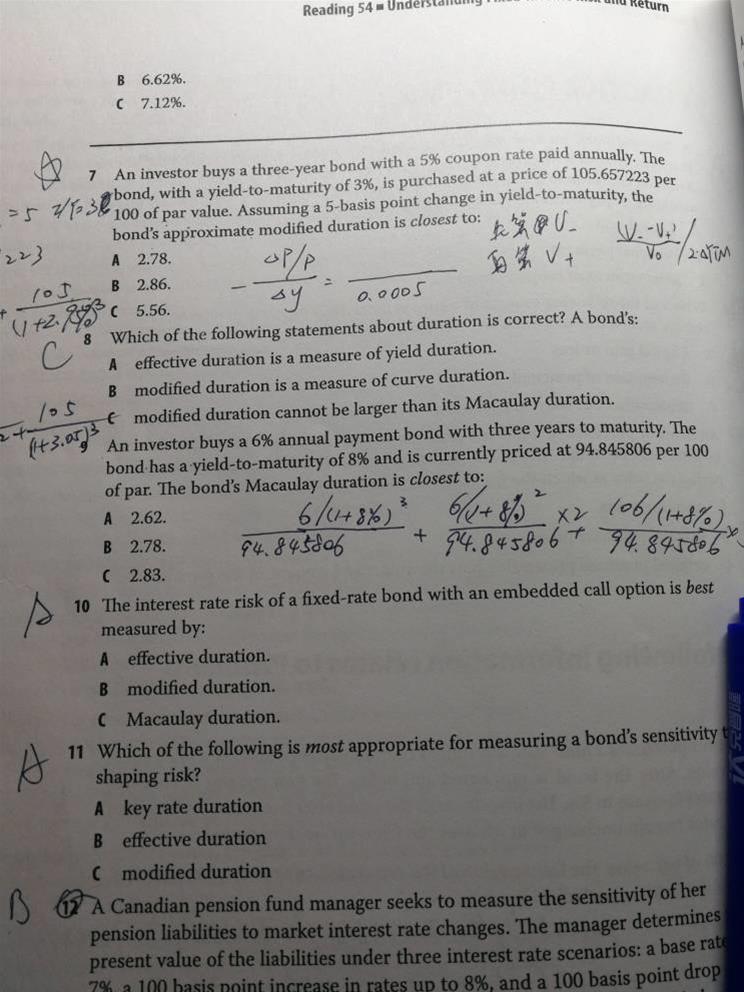 Reading 54 ■ Understanding Fixed-Income Risk and Return
B 6.62%.
C 7.12%.
A
7 An investor buys a three-year bond with a 5% coupon rate paid annually. The
bond, with a yield-to-maturity of 3%, is purchased at a price of 105.657223 per
100 of par value. Assuming a 5-basis point change in yield-to-maturity, the
bond's approximate modified duration is closest to:
= 5
223
V-
V+
(V- - V+) / V0 / 2·ΔYTM
A 2.78.
B 2.86.
C 5.56.
- ΔP/P / Δy = / 0.0005
+ 105 / (1+2.95%)³
8 Which of the following statements about duration is correct? A bond's:
C
A effective duration is a measure of yield duration.
B modified duration is a measure of curve duration.
C modified duration cannot be larger than its Macaulay duration.
2 + 105 / (1+3.05)³
9 An investor buys a 6% annual payment bond with three years to maturity. The
bond has a yield-to-maturity of 8% and is currently priced at 94.845806 per 100
of par. The bond's Macaulay duration is closest to:
A 2.62.
B 2.78.
C 2.83.
6/(1+8%)³ / 94.845806 + 6/(1+8%)² / 94.845806 ×2 + 106/(1+8%) / 94.845806 ×
A
10 The interest rate risk of a fixed-rate bond with an embedded call option is best
measured by:
A effective duration.
B modified duration.
C Macaulay duration.
A
11 Which of the following is most appropriate for measuring a bond's sensitivity t
shaping risk?
A key rate duration
B effective duration
C modified duration
B
12 A Canadian pension fund manager seeks to measure the sensitivity of her
pension liabilities to market interest rate changes. The manager determines
present value of the liabilities under three interest rate scenarios: a base rate
7%, a 100 basis point increase in rates up to 8%, and a 100 basis point drop